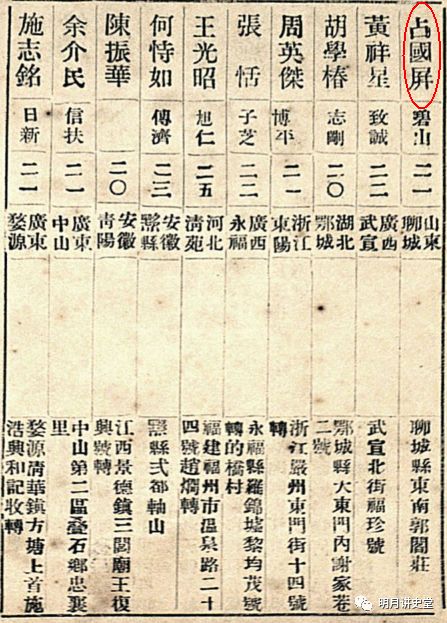 占國屏 碧山 二一 山東聊城 聊城縣東南郭閣莊
黃祥星 致誠 二二 廣西武宣 武宣北街福珍號
胡學椿 志剛 二〇 湖北鄂城 鄂城縣大東門內謝家巷二號
周英傑 博平 二一 浙江東陽 浙江嚴州東門街十四號轉
張恬 子芝 二二 廣西永福 永福縣羅錦墟黎均茂號轉的橋村
王光昭 旭仁 二五 河北清苑 福建福州市溫泉路二十四號趙爛轉
何恃如 傳濟 二三 安徽黟縣 黟縣弍都軸山
陳振華 二〇 安徽青陽 江西景德鎮三閭廟王復興號轉
余介民 信扶 二一 廣東中山 中山第二區疊石鄉忠襄里
施志銘 日新 二一 廣東婺源 婺源清華鎮方塘上首施浩興和記收轉
明月讲史堂